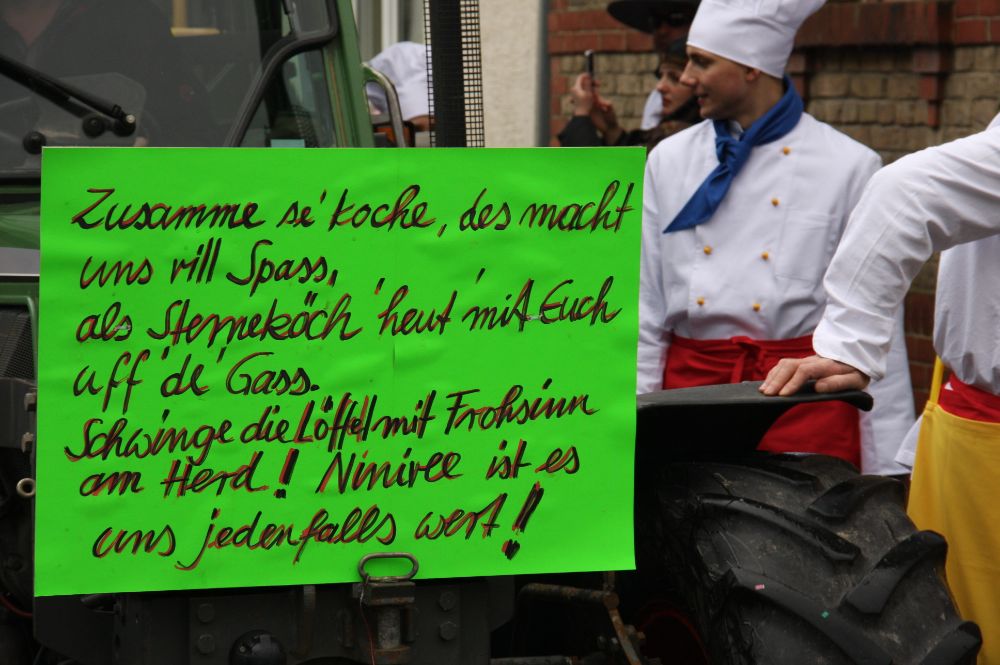 Zusamme se' koche, des macht
uns vill Spass,
als Sterneköch' heut' mit Euch
uff de' Gass.
Schwinge die Löffel mit Frohsinn
am Herd! Ninivee ist es
uns jedenfalls wert!!